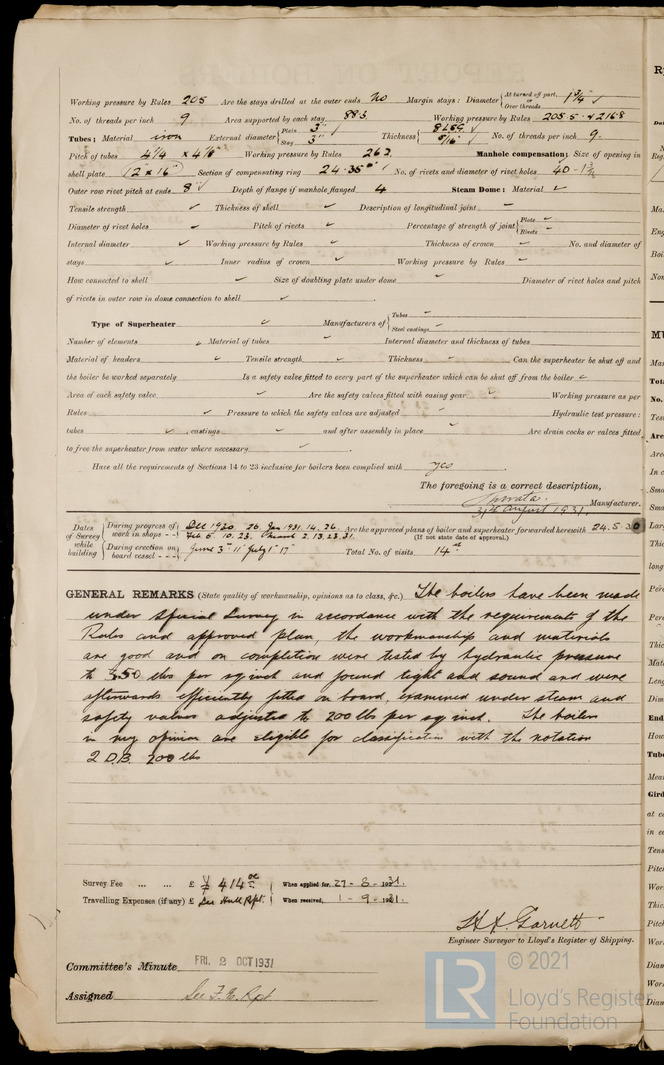 Working pressure by Rules 205 Are the stays drilled at the outer ends No Margin stays: Diameter { At turned off part, or Over threads 1 3/4" ✓
No. of threads per inch 9 Area supported by each stay 88.3 Working pressure by Rules 205.5 & 216.8
Tubes: Material iron External diameter { Plain 3" Stay 3" Thickness { 8 LSG ✓ 5/16" No. of threads per inch 9
Pitch of tubes 4 1/4 × 4 1/8" Working pressure by Rules 262 Manhole compensation: Size of opening in
shell plate 12" × 16" Section of compensating ring No. of rivets and diameter of rivet holes
Outer row rivet pitch at ends 8" ✓ Depth of flange if manhole flanged 4 Steam Dome: Material ✓
Tensile strength ✓ Thickness of shell ✓ Description of longitudinal joint —
Diameter of rivet holes ✓ Pitch of rivets ✓ Percentage of strength of joint { Plate — Rivets —
Internal diameter ✓ Working pressure by Rules ✓ Thickness of crown ✓ No. and diameter of
stays ✓ Inner radius of crown ✓ Working pressure by Rules —
How connected to shell ✓ Size of doubling plate under dome ✓ Diameter of rivet holes and pitch
of rivets in outer row in dome connection to shell ✓
Type of Superheater ✓ Manufacturers of { Tubes — Steel castings —
Number of elements ✓ Material of tubes ✓ Internal diameter and thickness of tubes
Material of headers ✓ Tensile strength ✓ Thickness ✓ Can the superheater be shut off and
the boiler be worked separately Is a safety valve fitted to every part of the superheater which can be shut off from the boiler ✓
Area of each safety valve ✓ Are the safety valves fitted with easing gear ✓ Working pressure as per
Rules ✓ Pressure to which the safety valves are adjusted ✓ Hydraulic test pressure:
tubes ✓ castings ✓ and after assembly in place ✓ Are drain cocks or valves fitted
to free the superheater from water where necessary ✓
Have all the requirements of Sections 14 to 23 inclusive for boilers been complied with yes
The foregoing is a correct description,
Manufacturer.
August 1931
Dates of Survey while building { During progress of work in shops - - } Dec 1930 26. Jan 1931. 14. 26. Feb 5. 10. 23. March 2. 13. 23. 31. Are the approved plans of boiler and superheater forwarded herewith 24.5.30
(If not state date of approval.)
{ During erection on board vessel - - - } June 3. 11 July 1. 17 Total No. of visits 14
GENERAL REMARKS (State quality of workmanship, opinions as to class, &c.) The boilers have been made
under Special Survey in accordance with the requirements of the
Rules and approved plan, the workmanship and materials
are good and on completion were tested by hydraulic pressure
to 350 lbs per sq inch and found tight and sound and were
afterwards efficiently fitted on board, examined under steam and
safety valves adjusted to 200 lbs per sq inch. The boilers
in my opinion are eligible for classification with the notation
2 D.B. 200 lbs
Survey Fee ... ... £ ¥ 414.00 When applied for, 27 - 8 - 1931.
Travelling Expenses (if any) £ See Hull Rpt. When received, 1 - 9 - 1931.
H. A. Garnett
Engineer Surveyor to Lloyd's Register of Shipping.
Committee's Minute FRI. 2 OCT 1931
Assigned See F.E. Rpt
LR © 2021
Lloyd's Register
Foundation